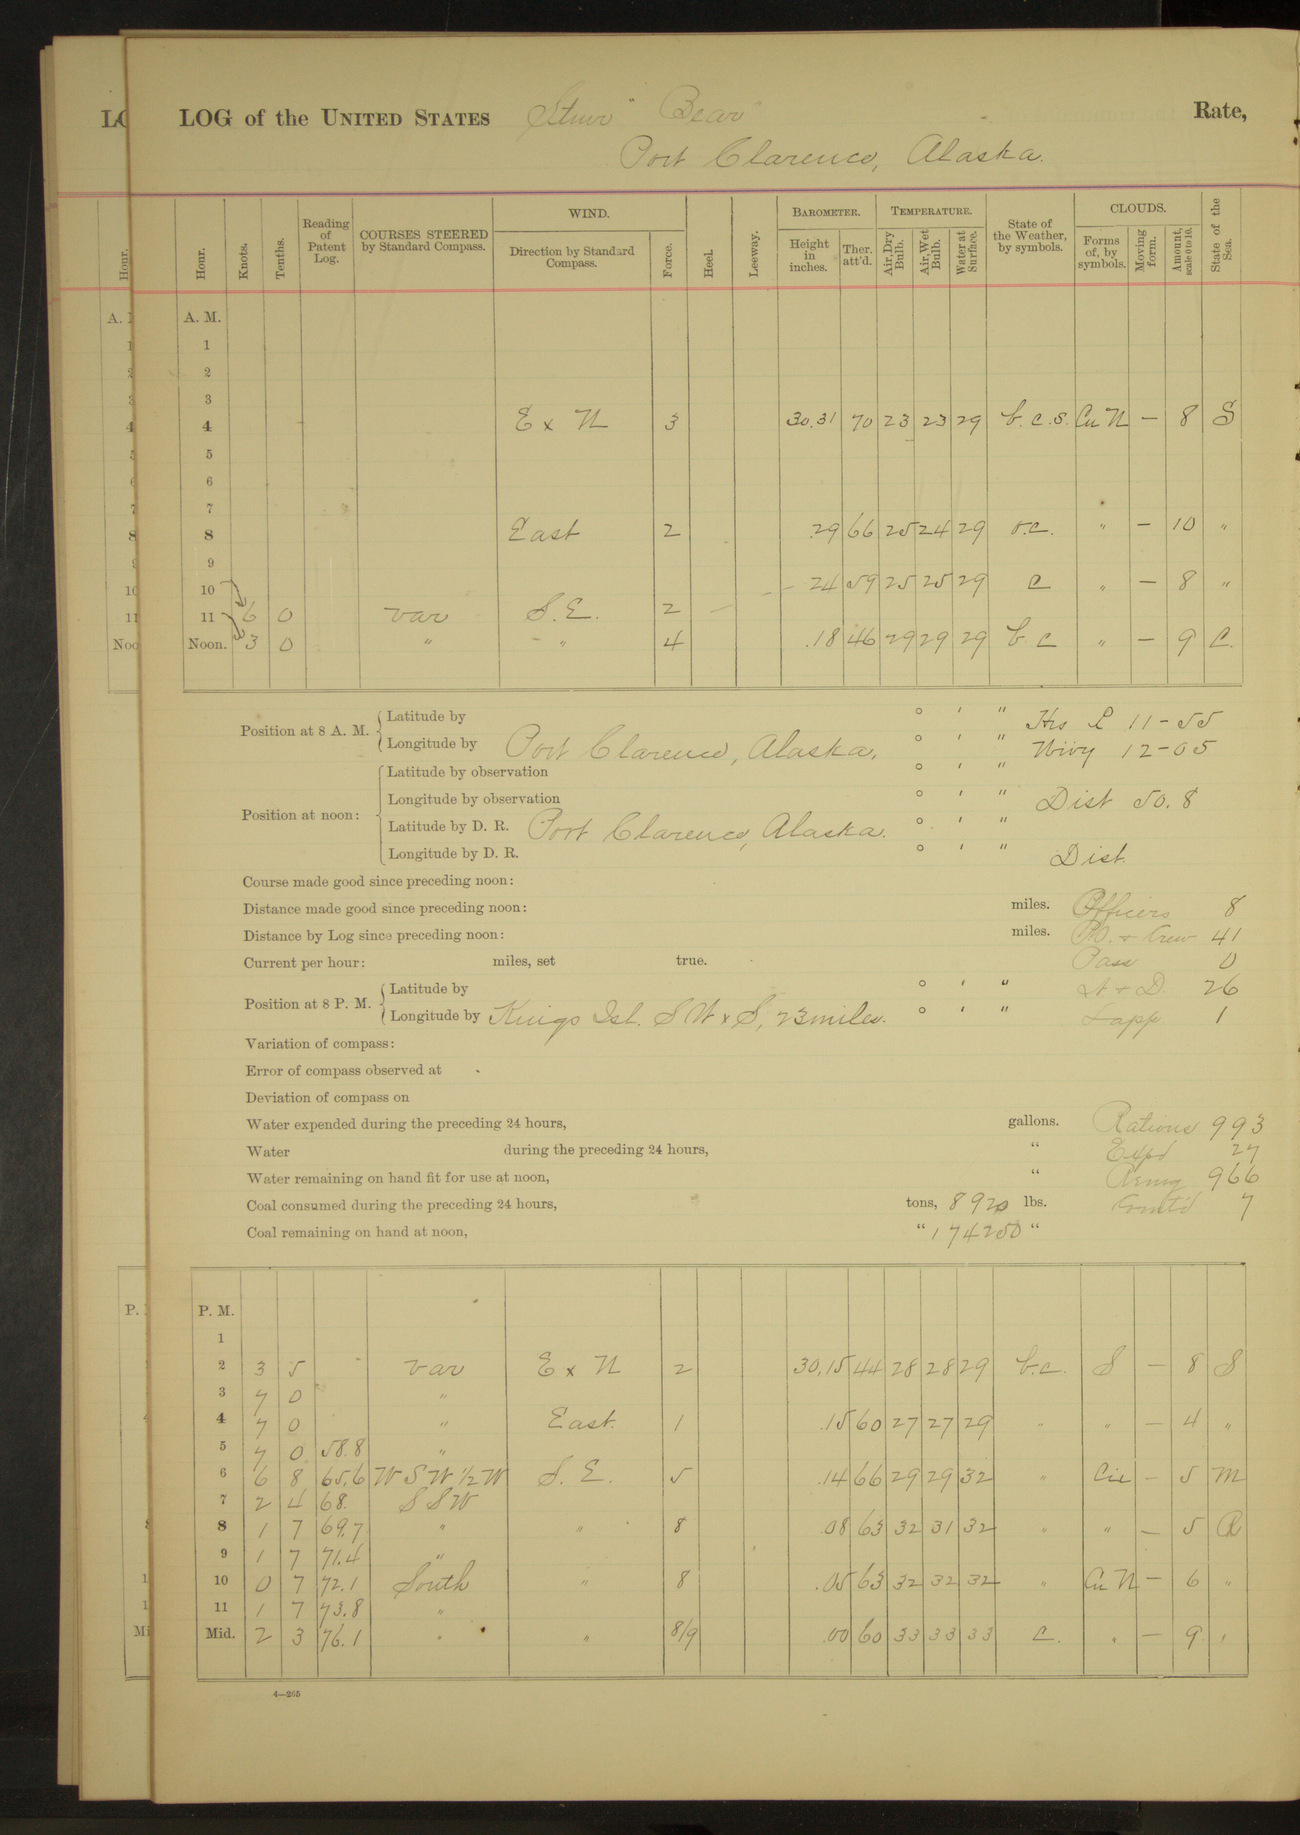 LOG of the UNITED STATES Stmr "Bear" Rate,
Port Clarence, Alaska.
Hour. Knots. Tenths. Reading of Patent Log. COURSES STEERED by Standard Compass. WIND. Direction by Standard Compass. Force. Heel. Leeway. BAROMETER. Height in inches. Ther. att'd. TEMPERATURE. Air, Dry Bulb. Air, Wet Bulb. Water at Surface. State of the Weather, by symbols. CLOUDS. Forms of, by symbols. Moving form. Amount, scale 0 to 10. State of the Sea.
A. M.
1
2
3
4 E x N 3 30.31 70 23 23 29 b.c.s. Cu N — 8 S
5
6
7
8 East 2 .29 66 25 24 29 o.c. " — 10 "
9
10 24 59 25 25 29 c " — 8 "
11 6 0 var S.E. 2
Noon. 3 0 " " 4 .18 46 29 29 29 b c " — 9 C.
Position at 8 A. M. Latitude by ° ' " Hrs P 11-55
Longitude by Port Clarence, Alaska. ° ' " 12-05
Position at noon: Latitude by observation ° ' "
Longitude by observation ° ' " Dist 50.8
Latitude by D. R. Port Clarence, Alaska. ° ' "
Longitude by D. R. ° ' " Dist.
Course made good since preceding noon:
Distance made good since preceding noon: miles. Officers 8
Distance by Log since preceding noon: miles. P.O. & Crew 41
Current per hour: miles, set true. Pass 0
Position at 8 P. M. Latitude by ° ' " D. 26
Longitude by Kings Isl. SW x S, 23 miles. ° ' " Lapp 1
Variation of compass:
Error of compass observed at
Deviation of compass on
Water expended during the preceding 24 hours, gallons. Rations 993
Water during the preceding 24 hours, " Expd 27
Water remaining on hand fit for use at noon, " Remg 966
Coal consumed during the preceding 24 hours, tons, 8920 lbs. Comt'd 7
Coal remaining on hand at noon, " 174250 "
P. M.
1
2 3 5 var E x N 2 30.15 44 28 28 29 b.c. S — 8 S
3 7 0 "
4 7 0 " East. 1 .15 60 27 27 29 " " — 4 "
5 7 0 58.8 "
6 6 8 65.6 W S W ½ W S. E. 5 .14 66 29 29 32 " Cir — 5 M
7 2 4 68. S S W
8 1 7 69.7 " " 8 .08 63 32 31 32 " " — 5 R
9 1 7 71.4 "
10 0 7 72.1 South " 8 .05 63 32 32 32 " Cu N — 6 "
11 1 7 73.8 "
Mid. 2 3 76.1 " " 8/9 .00 60 33 33 33 c. " — 9 "
4—265